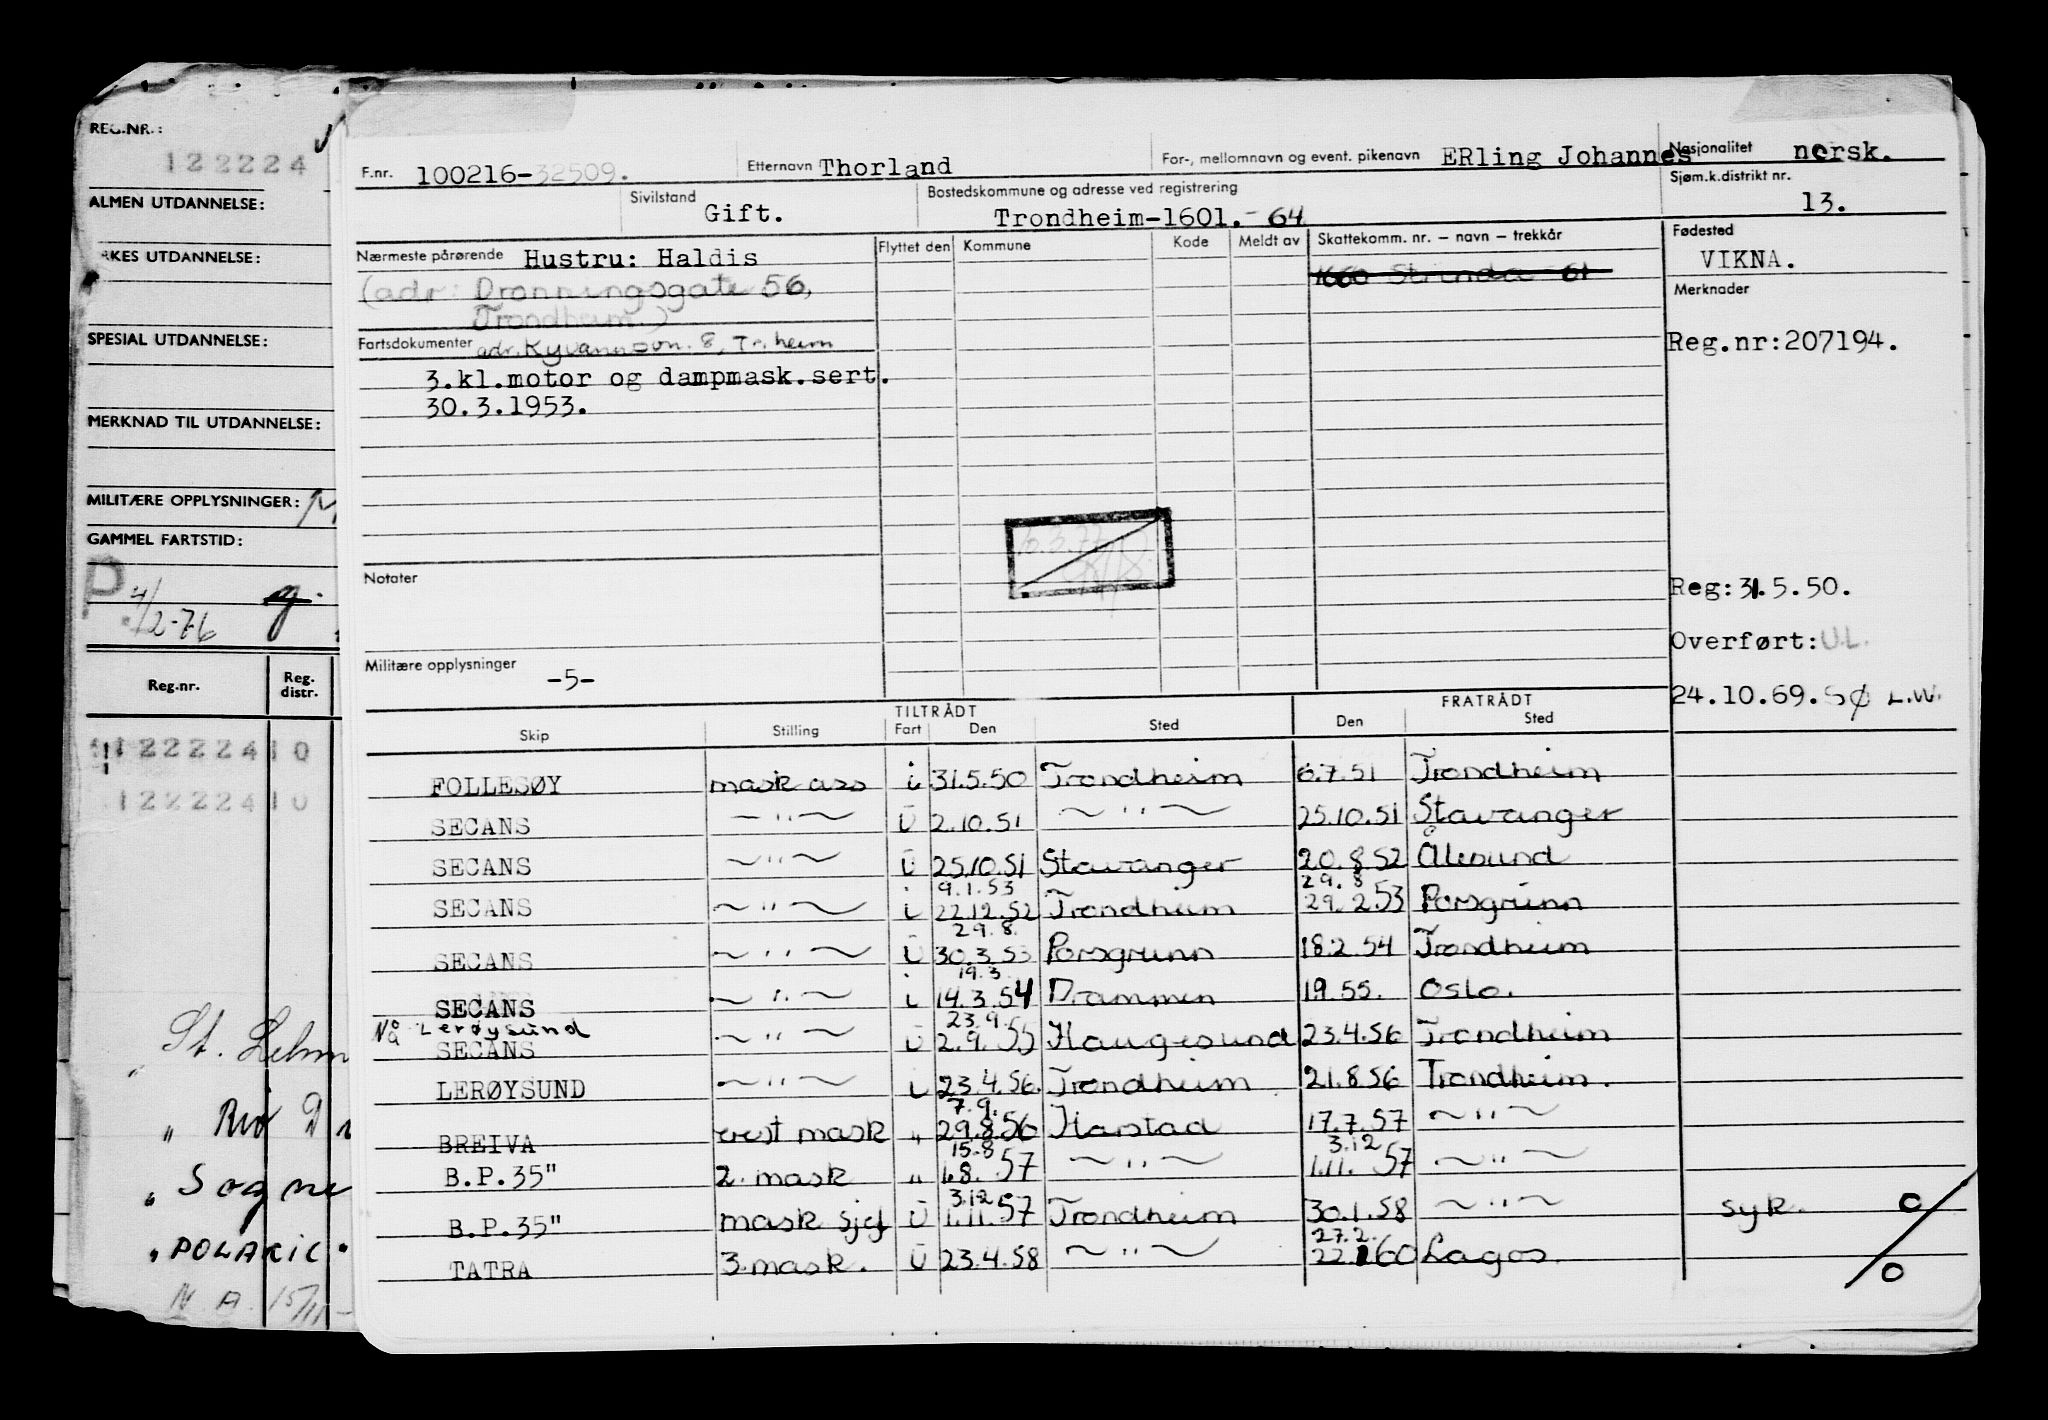 REG.NR.:
122224
ALMEN UTDANNELSE:
RKES UTDANNELSE:
SPESIAL UTDANNELSE:
MERKNAD TIL UTDANNELSE:
MILITÆRE OPPLYSNINGER:
GAMMEL FARTSTID:
P. 4/2-76 g.
Reg.nr. Reg. distr.
122224 10
122224 10
St.
" Rio D
" Sogne
" POLARIC
N. A. 15/11 -
F.nr. 100216-32509. Etternavn Thorland For-, mellomnavn og event. pikenavn ERling Johannes Nasjonalitet norsk.
Sivilstand Gift. Bostedskommune og adresse ved registrering Trondheim-1601.- 64 Sjøm.k.distrikt nr. 13.
Nærmeste pårørende Hustru: Haldis Flyttet den Kommune Kode Meldt av Skattekomm. nr. – navn – trekkår Fødested VIKNA.
(adr: Dronningsgate 56, 1660 Strinda 61
Trondheim.) Merknader
Fartsdokumenter adr. 8, Tr.heim Reg.nr:207194.
3.kl.motor og dampmask.sert.
30.3.1953.
Notater
Reg:31.5.50.
Overført: U.L.
Militære opplysninger -5-
24.10.69. SØ L.W.
TILTRÅDT FRATRÅDT
Skip Stilling Fart Den Sted Den Sted
FOLLESØY mask ass i 31.5.50 Trondheim 6.7.51 Trondheim
SECANS ~ " ~ U 2.10.51 ~ " ~ 25.10.51 Stavanger
SECANS ~ " ~ U 25.10.51 Stavanger 20.8.52 Ålesund
9.1.53 29.8
SECANS ~ " ~ i 22.12.52 Trondheim 29.2.53 Porsgrunn
29.8.
SECANS ~ " ~ U 30.3.53 Porsgrunn 18.2.54 Trondheim
19.3.
SECANS ~ " ~ i 14.3.54 Drammen 1.9.55. Oslo.
Nå Lerøysund 23.9.
SECANS ~ " ~ U 2.9.55 Haugesund 23.4.56 Trondheim
LERØYSUND ~ " ~ i 23.4.56. Trondheim 21.8.56 Trondheim.
7.9.
BREIVA mask " 29.8.56 Harstad 17.7.57 ~ " ~
15.8 3.12
B.P.35" 2. mask " 1.8.57 ~ " ~ 1.11.57 ~ " ~
3.12
B.P.35" mask sjef U 1.11.57 Trondheim 30.1.58 ~ " ~ syk. 0/0
27.2.
TATRA 3.mask. U 23.4.58 ~ " ~ 22.160 Lagos.